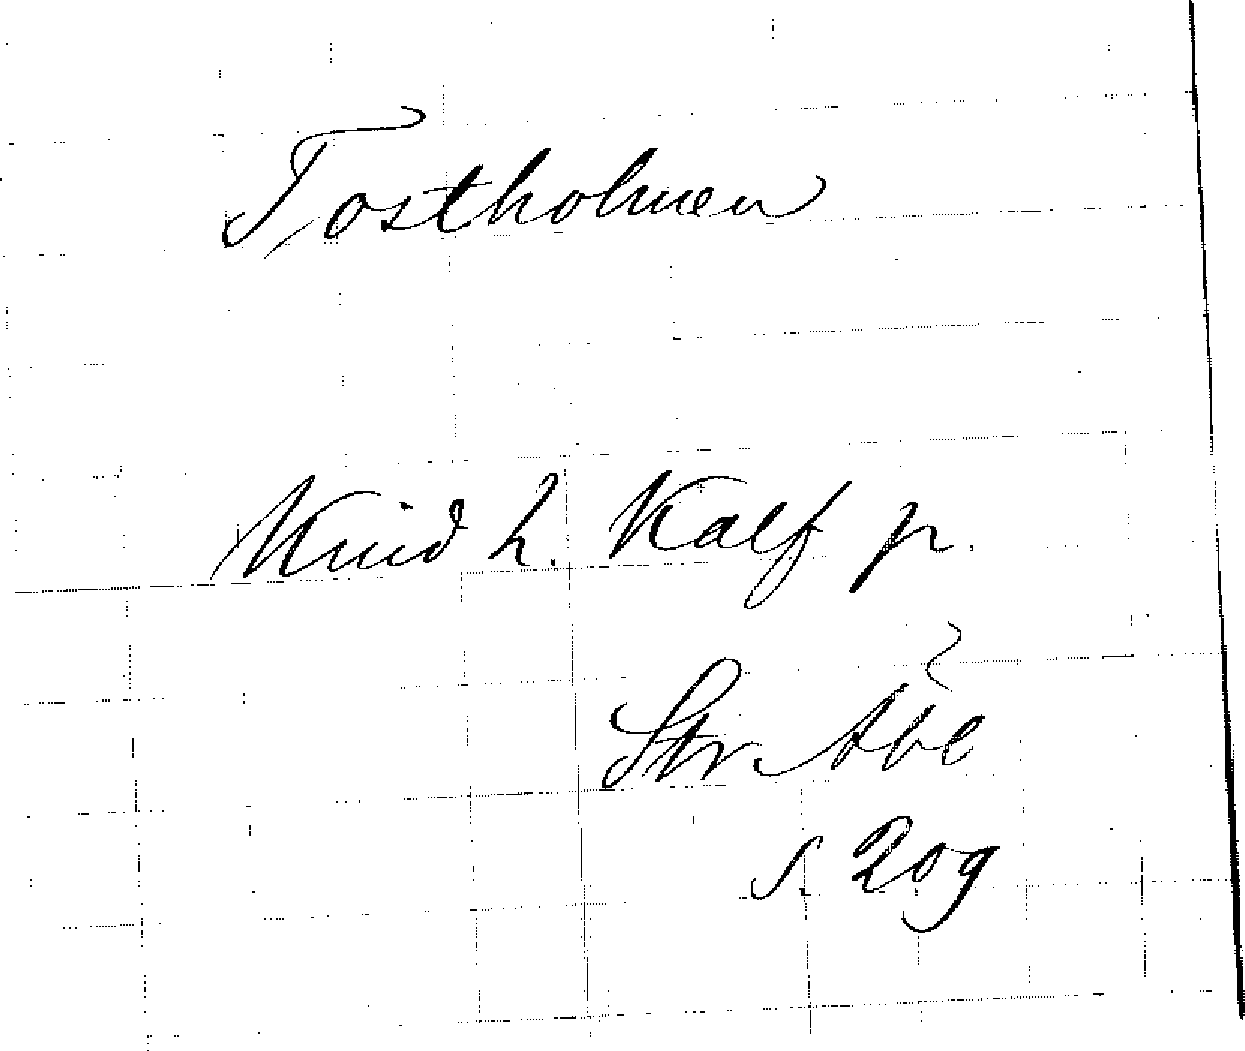 Tostholmen
Knud L. Kalf jr.
Str.
s. 209